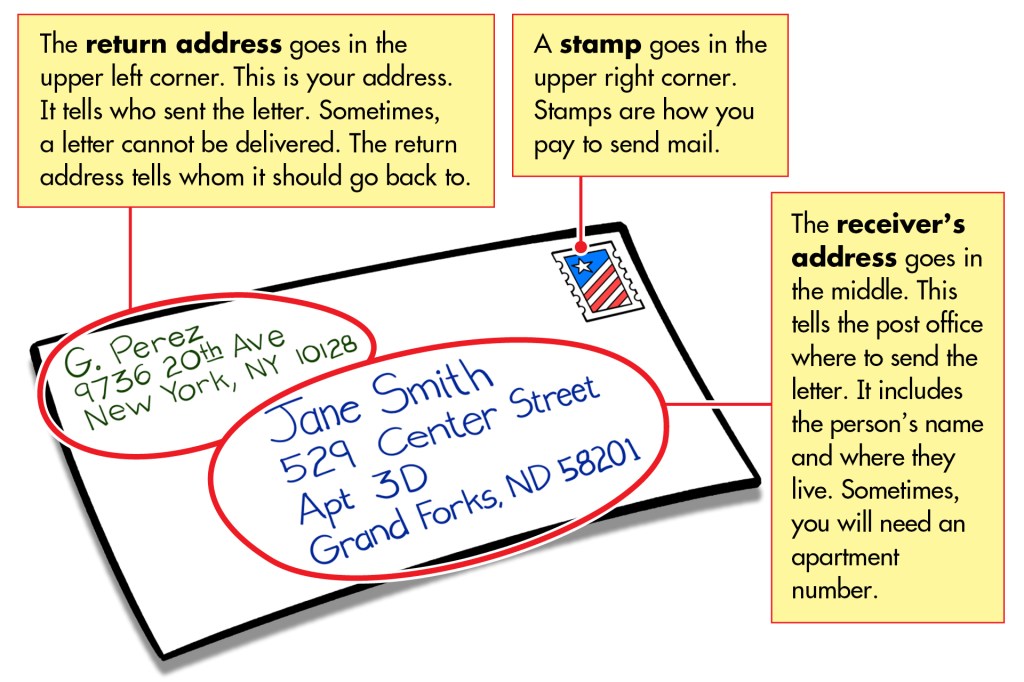 The return address goes in the
upper left corner. This is your address.
It tells who sent the letter. Sometimes,
a letter cannot be delivered. The return
address tells whom it should go back to.
A stamp goes in the
upper right corner.
Stamps are how you
pay to send mail.
The receiver’s
address goes in
the middle. This
tells the post office
where to send the
letter. It includes
the person’s name
and where they
live. Sometimes,
you will need an
apartment
number.
G. Perez
9736 20th Ave
New York, NY 10128
Jane Smith
529 Center Street
Apt 3D
Grand Forks, ND 58201